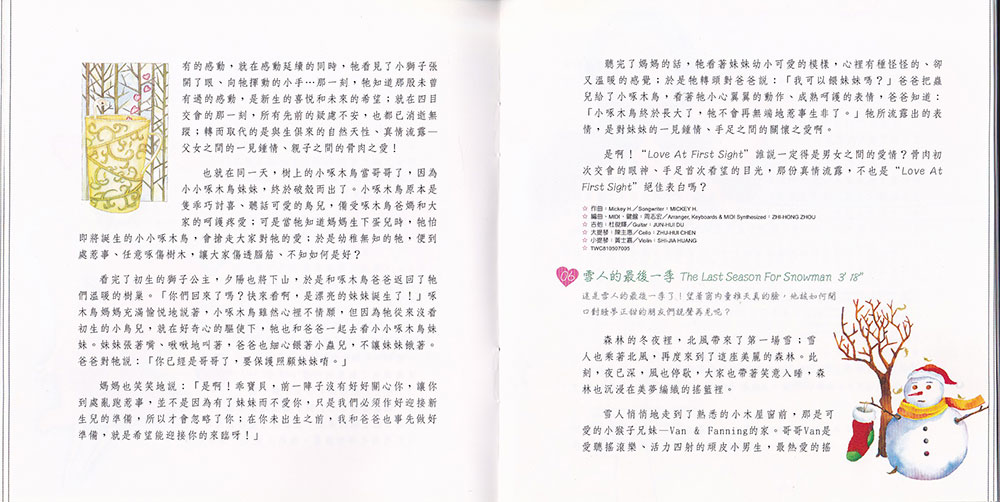 有的感動，就在感動延續的同時，牠看見了小獅子張
開了眼、向牠揮動的小手…那一刻，牠知道那股未曾
有過的感動，是新生的喜悅和未來的希望；就在四目
交會的那一刻，所有先前的疑慮不安，也都已消逝無
蹤；轉而取代的是與生俱來的自然天性、真情流露─
父女之間的一見鍾情、親子之間的骨肉之愛！
也就在同一天，樹上的小啄木鳥當哥哥了，因為
小小啄木鳥妹妹，終於破殼而出了。小啄木鳥原本是
隻乖巧討喜、聽話可愛的鳥兒，備受啄木鳥爸媽和大
家的呵護疼愛；可是當牠知道媽媽生下蛋兒時，牠怕
即將誕生的小小啄木鳥，會搶走大家對牠的愛；於是幼稚無知的牠，便到
處惹事、任意啄傷樹木，讓大家傷透腦筋、不知如何是好？
看完了初生的獅子公主，夕陽也將下山，於是和啄木鳥爸爸返回了牠
們溫暖的樹巢。「你們回來了嗎？快來看啊，是漂亮的妹妹誕生了！」啄
木鳥媽媽充滿愉悅地說著，小啄木鳥雖然心裡不情願，但因為牠從來沒看
初生的小鳥兒，就在好奇心的驅使下，牠也和爸爸一起去看小小啄木鳥妹
妹。妹妹張著嘴、啾啾地叫著，爸爸也細心餵著小蟲兒，不讓妹妹餓著。
爸爸對牠說：「你已經是哥哥了，要保護照顧妹妹唷。」
媽媽也笑笑地說：「是啊！乖寶貝，前一陣子沒有好好關心你，讓你
到處亂跑惹事，並不是因為有了妹妹而不愛你，只是我們必須作好迎接新
生兒的準備，所以才會忽略了你；在你未出生之前，我和爸爸也事先做好
準備，就是希望能迎接你的來臨呀！」
聽完了媽媽的話，牠看著妹妹幼小可愛的模樣，心裡有種怪怪的、卻
又溫暖的感覺；於是牠轉頭對爸爸說：「我可以餵妹妹嗎？」爸爸把蟲
兒給了小啄木鳥，看著牠小心翼翼的動作、成熟呵護的表情，爸爸知道：
「小啄木鳥終於長大了，牠不會再無端地惹事生非了。」牠所流露出的表
情，是對妹妹的一見鍾情、手足之間的關懷之愛啊。
是啊！“Love At First Sight”誰說一定得是男女之間的愛情？骨肉初
次交會的眼神、手足首次看望的目光，那份真情流露，不也是“Love At
First Sight”絕佳表白嗎？
☆ 作曲：Mickey H.／Songwriter：MICKEY H.
☆ 編曲、MIDI、鍵盤：周志宏／Arranger, Keyboards & MIDI Synthesized：ZHI-HONG ZHOU
☆ 吉他：杜俊輝／Guitar：JUN-HUI DU
☆ 大提琴：陳主惠／Cello：ZHU-HUI CHEN
☆ 小提琴：黃士嘉／Violin：SHI-JIA HUANG
☆ TWC810507005
06 雪人的最後一季 The Last Season For Snowman 3′18″
這是雪人的最後一季了！望著窗內童稚天真的臉，他該如何開
口對睡夢正甜的朋友們說聲再見呢？
森林的冬夜裡，北風帶來了第一場雪；雪
人也乘著北風，再度來到了這座美麗的森林。此
刻，夜已深，風也停歇，大家也帶著笑意入睡，森
林也沉浸在美夢編織的搖籃裡。
雪人悄悄地走到了熟悉的小木屋窗前，那是可
愛的小猴子兄妹─Van & Fanning的家。哥哥Van是
愛聽搖滾樂、活力四射的頑皮小男生，最熱愛的搖